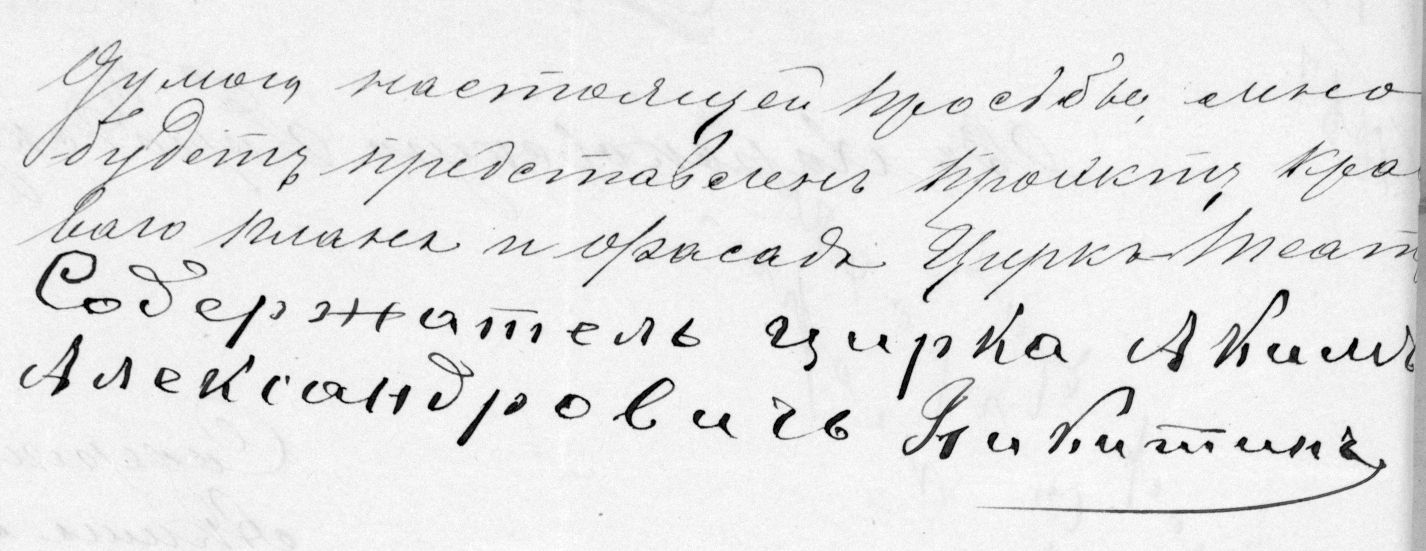 Думою настоящей просьбы, мною
будетъ представленъ проэктъ кра
ваго плана и фасада Циркъ-Теат
Содержатель цирка Акимъ
Александровичъ Никитинъ